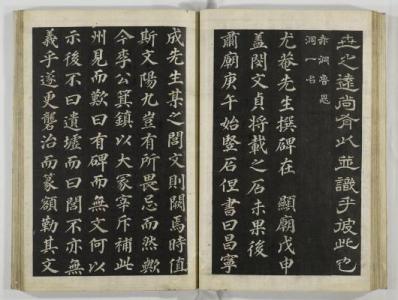 世之遠尚有此並識乎彼此也
赤洞魯恩
洞一名
尤菴先生撰碑在 顯廟戊申
蓋閔文貞將載之石未果後
肅廟庚午始竪石但書曰昌寧
成先生某之閭文則闕焉時値
斯文陽九豈有所畏忌而然歟
今李公箕鎭以大冢宰斥補此
州見而歎曰有碑而無文何以
示後不曰遺墟而曰閭不亦無
義乎遂更礱治而篆額勒其文